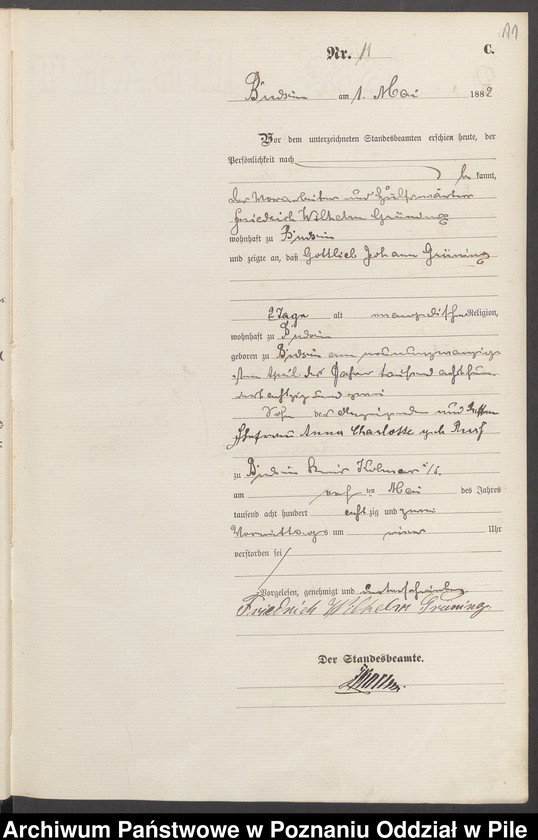 11
Nr. 11
C.
Budsin am 1. Mai 1882
Vor dem unterzeichneten Standesbeamten erschien heute, der
Persönlichkeit nach
be kannt,
der Vorarbeiter und Hülfswärter
Friedrich Wilhelm Grüning
wohnhaft zu Budsin
und zeigte an, daß Gottlieb Johann Grüning
2 Tage alt evangelischer Religion,
wohnhaft zu Budsin
geboren zu Budsin am neunundzwanzig-
sten April des Jahres tausend achthun-
dert achtzig und zwei
Sohn des Anzeigenden und dessen
Ehefrau Anna Charlotte geb.
zu Budsin Kreis Kolmar i/P.
am ersten ten Mai des Jahres
tausend acht hundert acht zig und zwei
Vormittags um einen Uhr
verstorben sei
Vorgelesen, genehmigt und unterschrieben
Friedrich Wilhelm Grüning.
Der Standesbeamte.
Archiwum Państwowe w Poznaniu Oddział w Pile